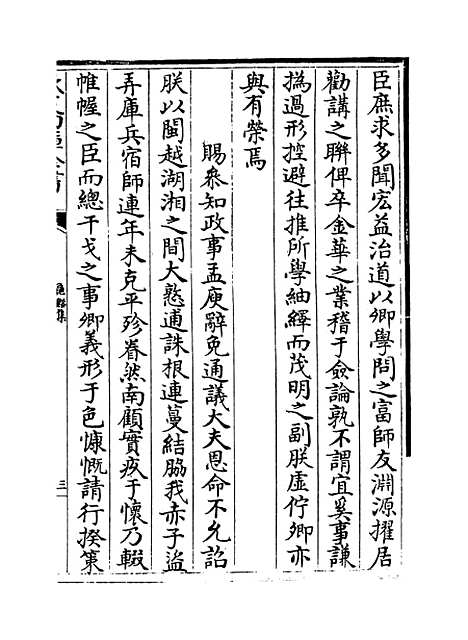 臣庶求多聞宏益治道以卿學問之富師友淵源擢居
勸講之聨俾卒金華之業稽于僉論孰不謂宜奚事謙
撝過形控避往推所學紬繹而茂明之副朕虚佇卿亦
與有榮焉
賜叅知政事孟庾辭免通議大夫恩命不允詔
朕以閩越湖湘之間大憝逋誅根連蔓結脇我赤子盜
弄庫兵宿師連年未克平殄眷然南顧實疚于懷乃輟
帷幄之臣而總干戈之事卿義形于色慷慨請行揆策
三